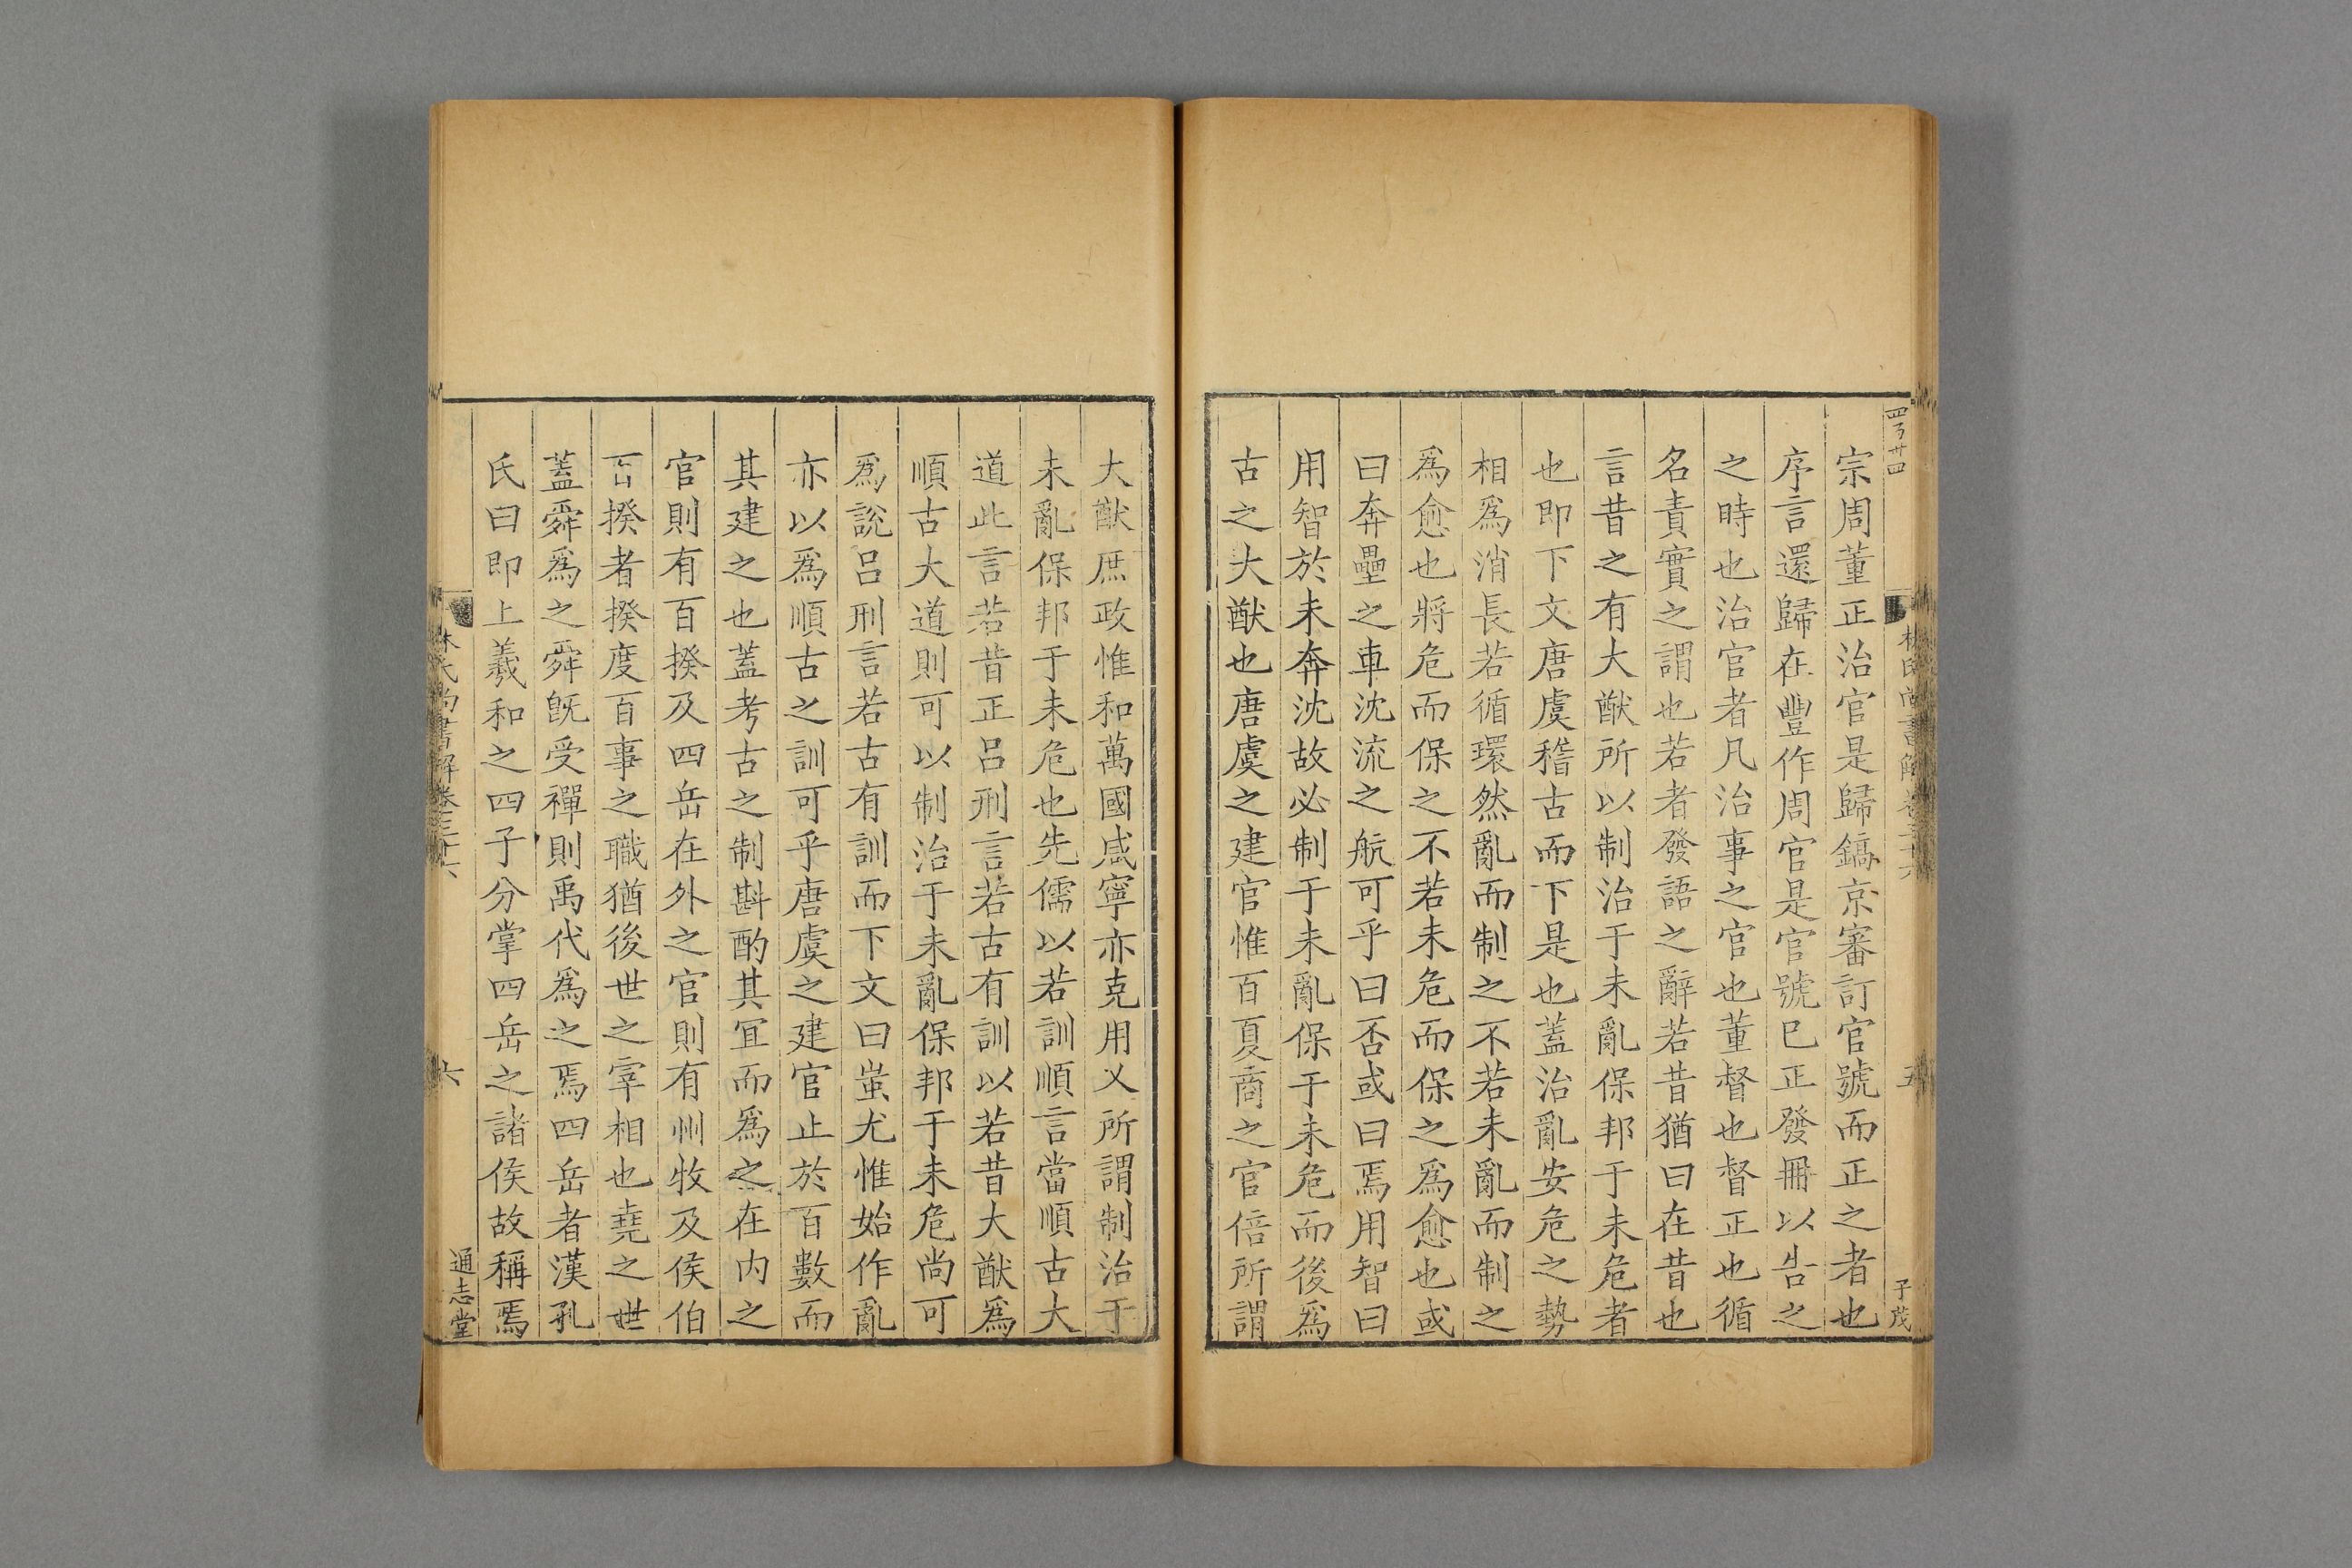 宗周董正治官是歸鎬京審訂官號而正之者也
序言還歸在豐作周官是官號已正發冊以告之
之時也治官者凡治事之官也董督也督正也循
名責實之謂也若者發語之辭若昔猶曰在昔也
言昔之有大猷所以制治于未亂保邦于未危者
也即下文唐虞稽古而下是也蓋治亂安危之勢
相爲消長若循環然亂而制之不若未亂而制之
爲愈也將危而保之不若未危而保之爲愈也或
曰奔壘之車沈流之航可乎曰否或曰焉用智曰
用智於未奔沈故必制于未亂保于未危而後爲
古之大猷也唐虞之建官惟百夏商之官倍所謂
子茂
大猷庶政惟和萬國咸寧亦克用乂所謂制治于
未亂保邦于未危也先儒以若訓順言當順古大
道此言若昔正呂刑言若古有訓以若昔大猷爲
順古大道則可以制治于未亂保邦于未危尚可
爲說呂刑言若古有訓而下文曰蚩尤惟始作亂
亦以爲順古之訓可乎唐虞之建官止於百數而
其建之也蓋考古之制斟酌其宜而爲之在内之
官則有百揆及四岳在外之官則有州牧及侯伯
百揆者揆度百事之職猶後世之宰相也堯之世
蓋舜爲之舜旣受禪則禹代爲之焉四岳者漢孔
氏曰即上羲和之四子分掌四岳之諸侯故稱焉
林氏尚書解卷三十六
六
通志堂